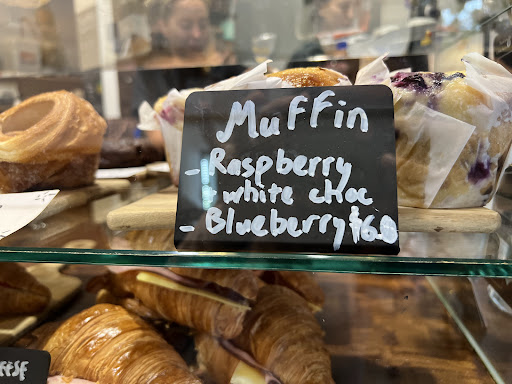 Muffin
- Raspberry
& white choc
- Blueberry $6.0
EESE